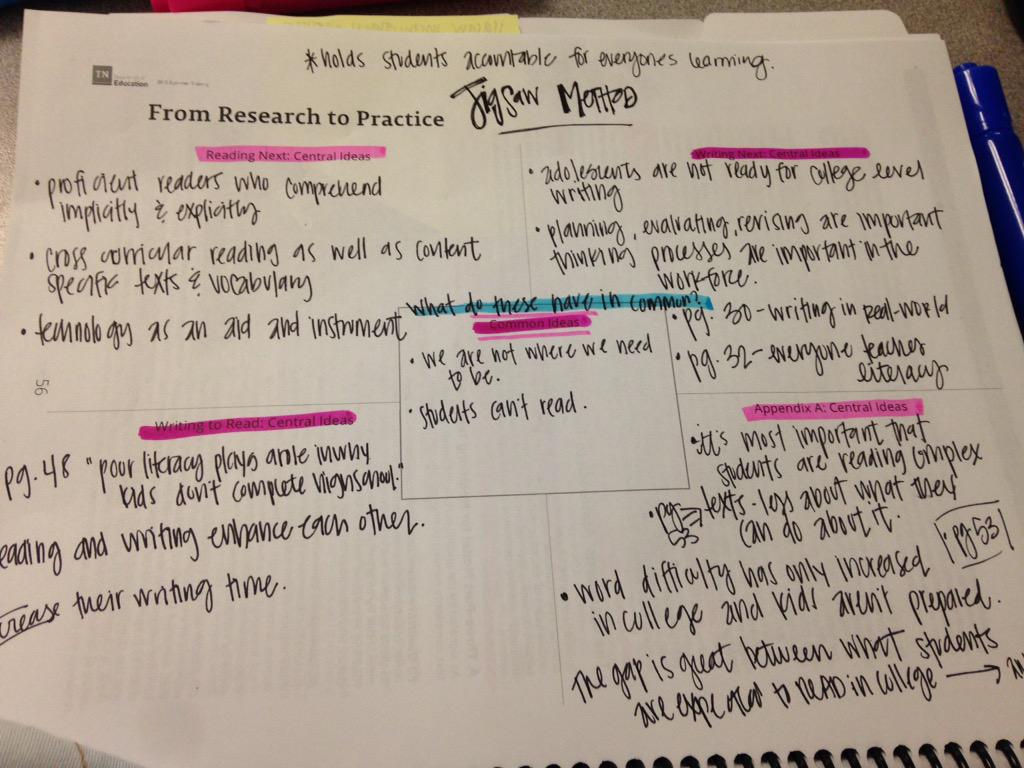 *holds students accountable for everyones learning.
TN
Department of
Education
From Research to Practice
Jigsaw Method
Reading Next: Central Ideas
• proficient readers who comprehend
implicitly & explicitly
• cross curricular reading as well as content
specific texts & vocabulary
• technology as an aid and instrument
Writing Next: Central Ideas
• adolescents are not ready for college level
writing
• planning, evaluating, revising are important
thinking processes are important in the
workforce.
• pg. 30 - writing in real-world
• pg. 32 - everyone teaches
literacy
What do these have in common?
Common Ideas
• we are not where we need
to be.
• students can't read.
56
Writing to Read: Central Ideas
pg. 48 "poor literacy plays a role in why
kids don't complete highschool."
eading and writing enhance each other.
crease their writing time.
Appendix A: Central Ideas
• it's most important that
students are reading complex
texts - less about what they
can do about it.
• pg 53
• pg 53
• word difficulty has only increased
in college and kids aren't prepared.
The gap is great between what students
are expected to READ in college →